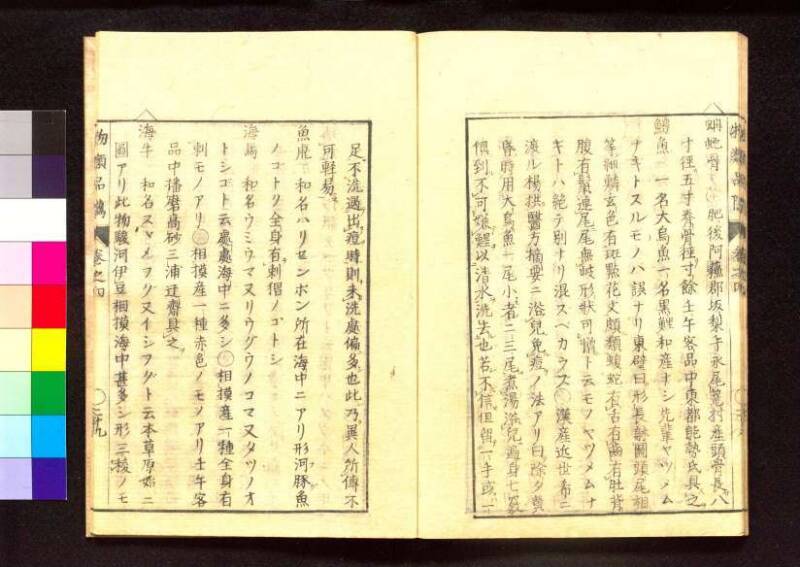 蚺蛇骨 肥後阿蘓郡坂梨手永尾篭村産頭骨長八
寸徑五寸脊骨徑寸餘壬午客品中東都能勢氏具之
鱧魚 一名大烏魚一名黒鯉和産ナシ先輩ヤツメム
ナキトスルモノハ誤ナリ東璧曰形長體圓頭尾相
等細鱗玄色有斑點花文頗類蝮蛇有舌有齒有肚背
腹有鬣連尾尾無歧形狀可憎ト云モノヤツメムナ
キトハ絶テ別ナリ混スベカラズ 漢産近世希ニ
渡ル楊拱醫方摘要ニ浴兒免痘ノ法アリ曰除夕黄
昏時用大烏魚一尾小者二三尾煮湯浴兒遍身七竅
倶到不可嫌鯹以清水洗去也若不信但留一手或一
物類品隲 巻之四
足不洗遇出痘時則未洗處偏多也此乃異人所傳不
可輕易
魚虎 和名ハリセンボン所在海中ニアリ形河豚魚
ノコトク全身有刺猬ノコトシ
海馬 和名ウミウマ又リウグウノコマ又タツノオ
トシゴト云處處海中ニ多シ 相摸産一種全身有
刺モノアリ 相摸産一種赤色ノモノアリ壬午客
品中播磨高砂三浦迂齋具之
海牛 和名スヾメフグ又イシフグト云本草原始ニ
圖アリ此物駿河伊豆相摸海中甚多シ形三稜ノモ
物類品隲 巻之四